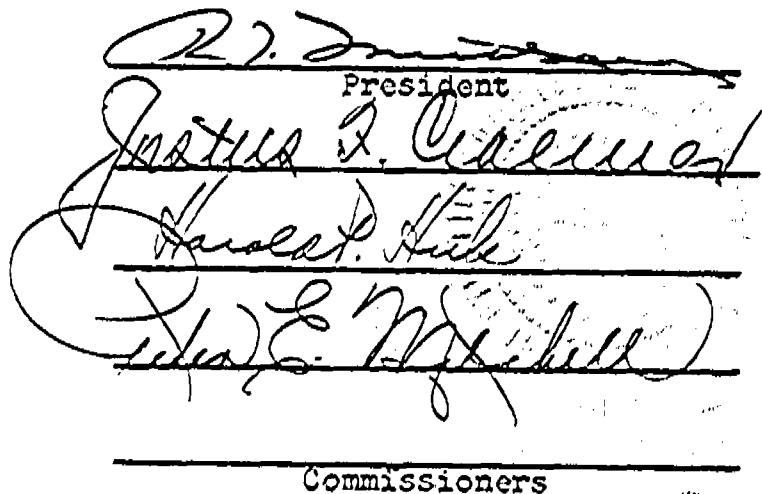 R. T.
President
Justus F. Craemer
Harold P. Huls
Peter E. Mitchell
Commissioners